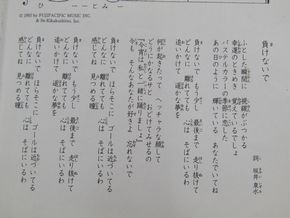 © 1993 by FUJIPACIFIC MUSIC INC.
負けないで
詞 坂井 泉水
ふとした瞬間に 視線がぶつかる
幸運のときめき 覚えているでしょ
パステルカラーの季節に恋した
あの日のように 輝いてる あなたでいてね
負けないで もう少し 最後まで 走り抜けて
どんなに 離れてても 心は そばにいるわ
追いかけて 遥かな夢を
何が起きたって ヘッチャラな顔して
どうにかなるサと おどけてみせるの
“今宵は私と一緒に踊りましょ”
今も そんなあなたが好きよ 忘れないで
負けないで ほらそこに ゴールは近づいてる
どんなに 離れてても 心は そばにいるわ
感じてね 見つめる瞳
負けないで もう少し 最後まで 走り抜けて
どんなに 離れてても 心は そばにいるわ
追いかけて 遥かな夢を
負けないで ほらそこに ゴールは近づいてる
どんなに 離れてても 心は そばにいるわ
感じてね 見つめる瞳